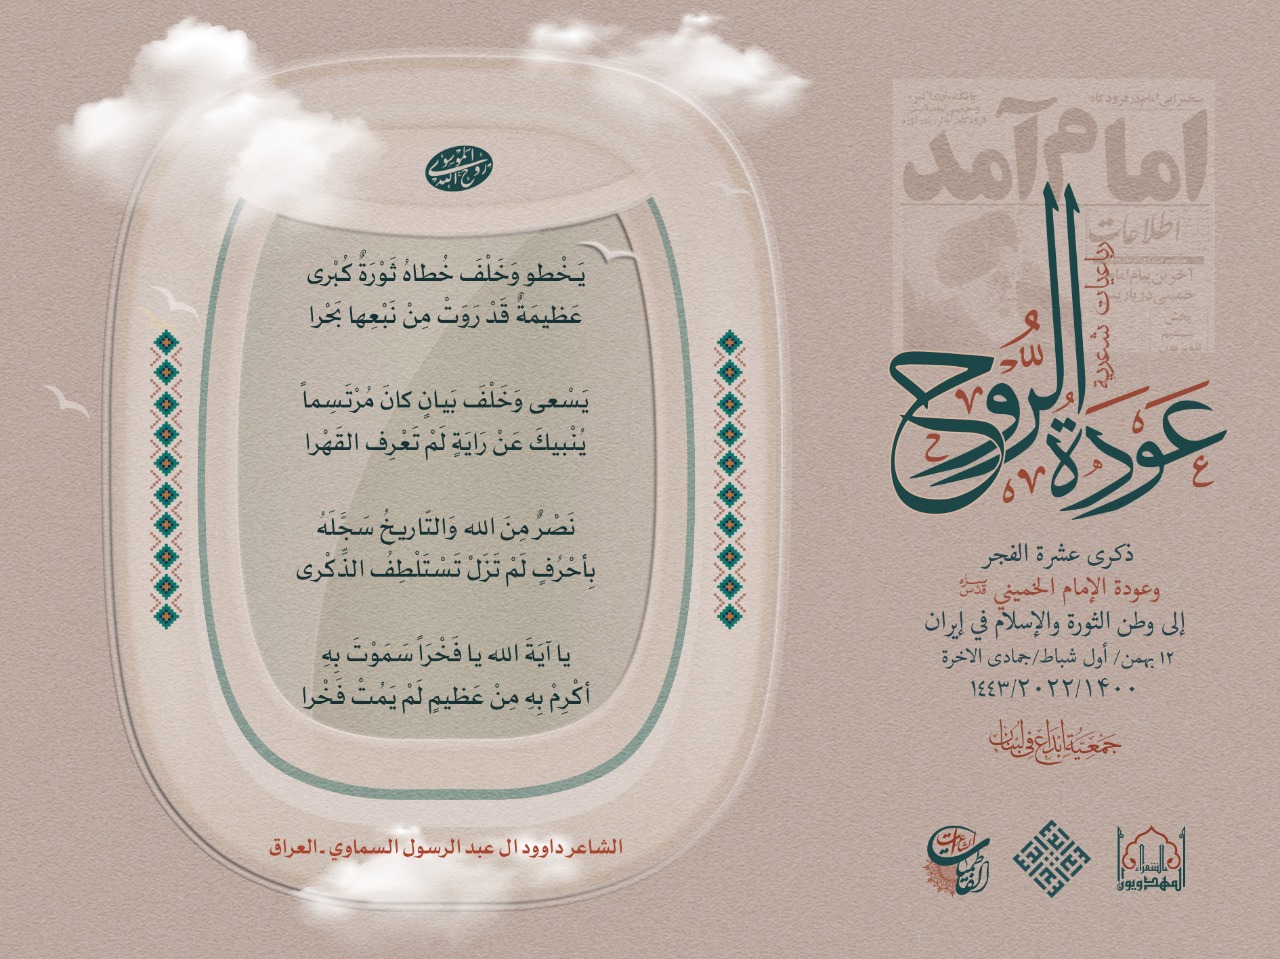 امام آمد
اطلاعات
رباعيات شعرية
عودة الرُّوح
ذكرى عشرة الفجر
وعودة الإمام الخميني قدّس سرّه
إلى وطن الثورة والإسلام في إيران
١٢ بهمن/ أول شباط/جمادى الاخرة
١٤٤٣/٢٠٢٢/١۴٠٠
جمعيّة إبداع في لبنان
الشعراء
المهدويون
الشاعرات
الفاطميات
روح الله الموسوي
يَخْطو وَخَلْفَ خُطاهُ ثَوْرَةٌ كُبْرى
عَظيمَةٌ قَدْ رَوَتْ مِنْ نَبْعِها بَحْرا
يَسْعى وَخَلْفَ بَيانٍ كانَ مُرْتَسِماً
يُنْبيكَ عَنْ رَايَةٍ لَمْ تَعْرِف القَهْرا
نَصْرٌ مِنَ الله وَالتّاريخُ سَجَّلَهُ
بِأحْرُفٍ لَمْ تَزَلْ تَسْتَلْطِفُ الذِّكْرى
يا آيَةَ الله يا فَخْرَاً سَمَوْتَ بِهِ
أكْرِمْ بِهِ مِنْ عَظيمٍ لَمْ يَمُتْ فَخْرا
الشاعر داوود ال عبد الرسول السماوي - العراق